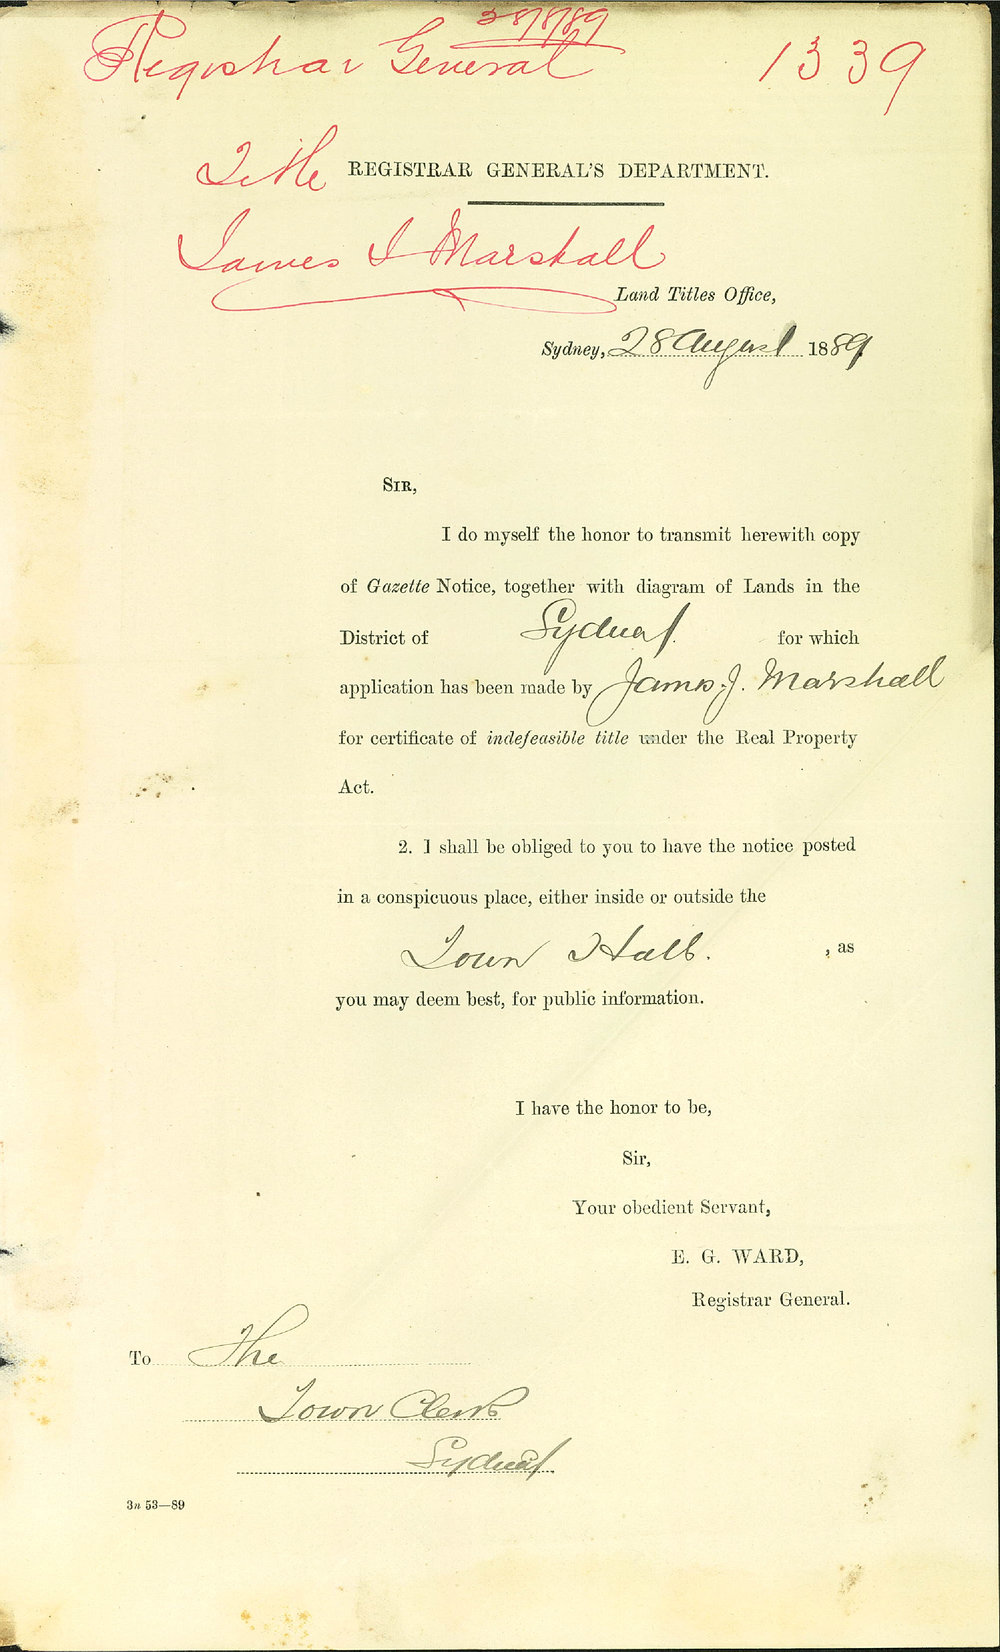 Registrar General
1339
Title
REGISTRAR GENERAL'S DEPARTMENT.
James J Marshall
Land Titles Office,
Sydney, 28 August 1889
SIR,
I do myself the honor to transmit herewith copy
of Gazette Notice, together with diagram of Lands in the
District of Sydney. for which
application has been made by James. J. Marshall
for certificate of indefeasible title under the Real Property
Act.
2. I shall be obliged to you to have the notice posted
in a conspicuous place, either inside or outside the
Town Hall. , as
you may deem best, for public information.
I have the honor to be,
Sir,
Your obedient Servant,
E. G. WARD,
Registrar General.
To The
Town Clerk
Sydney
3n 53—89